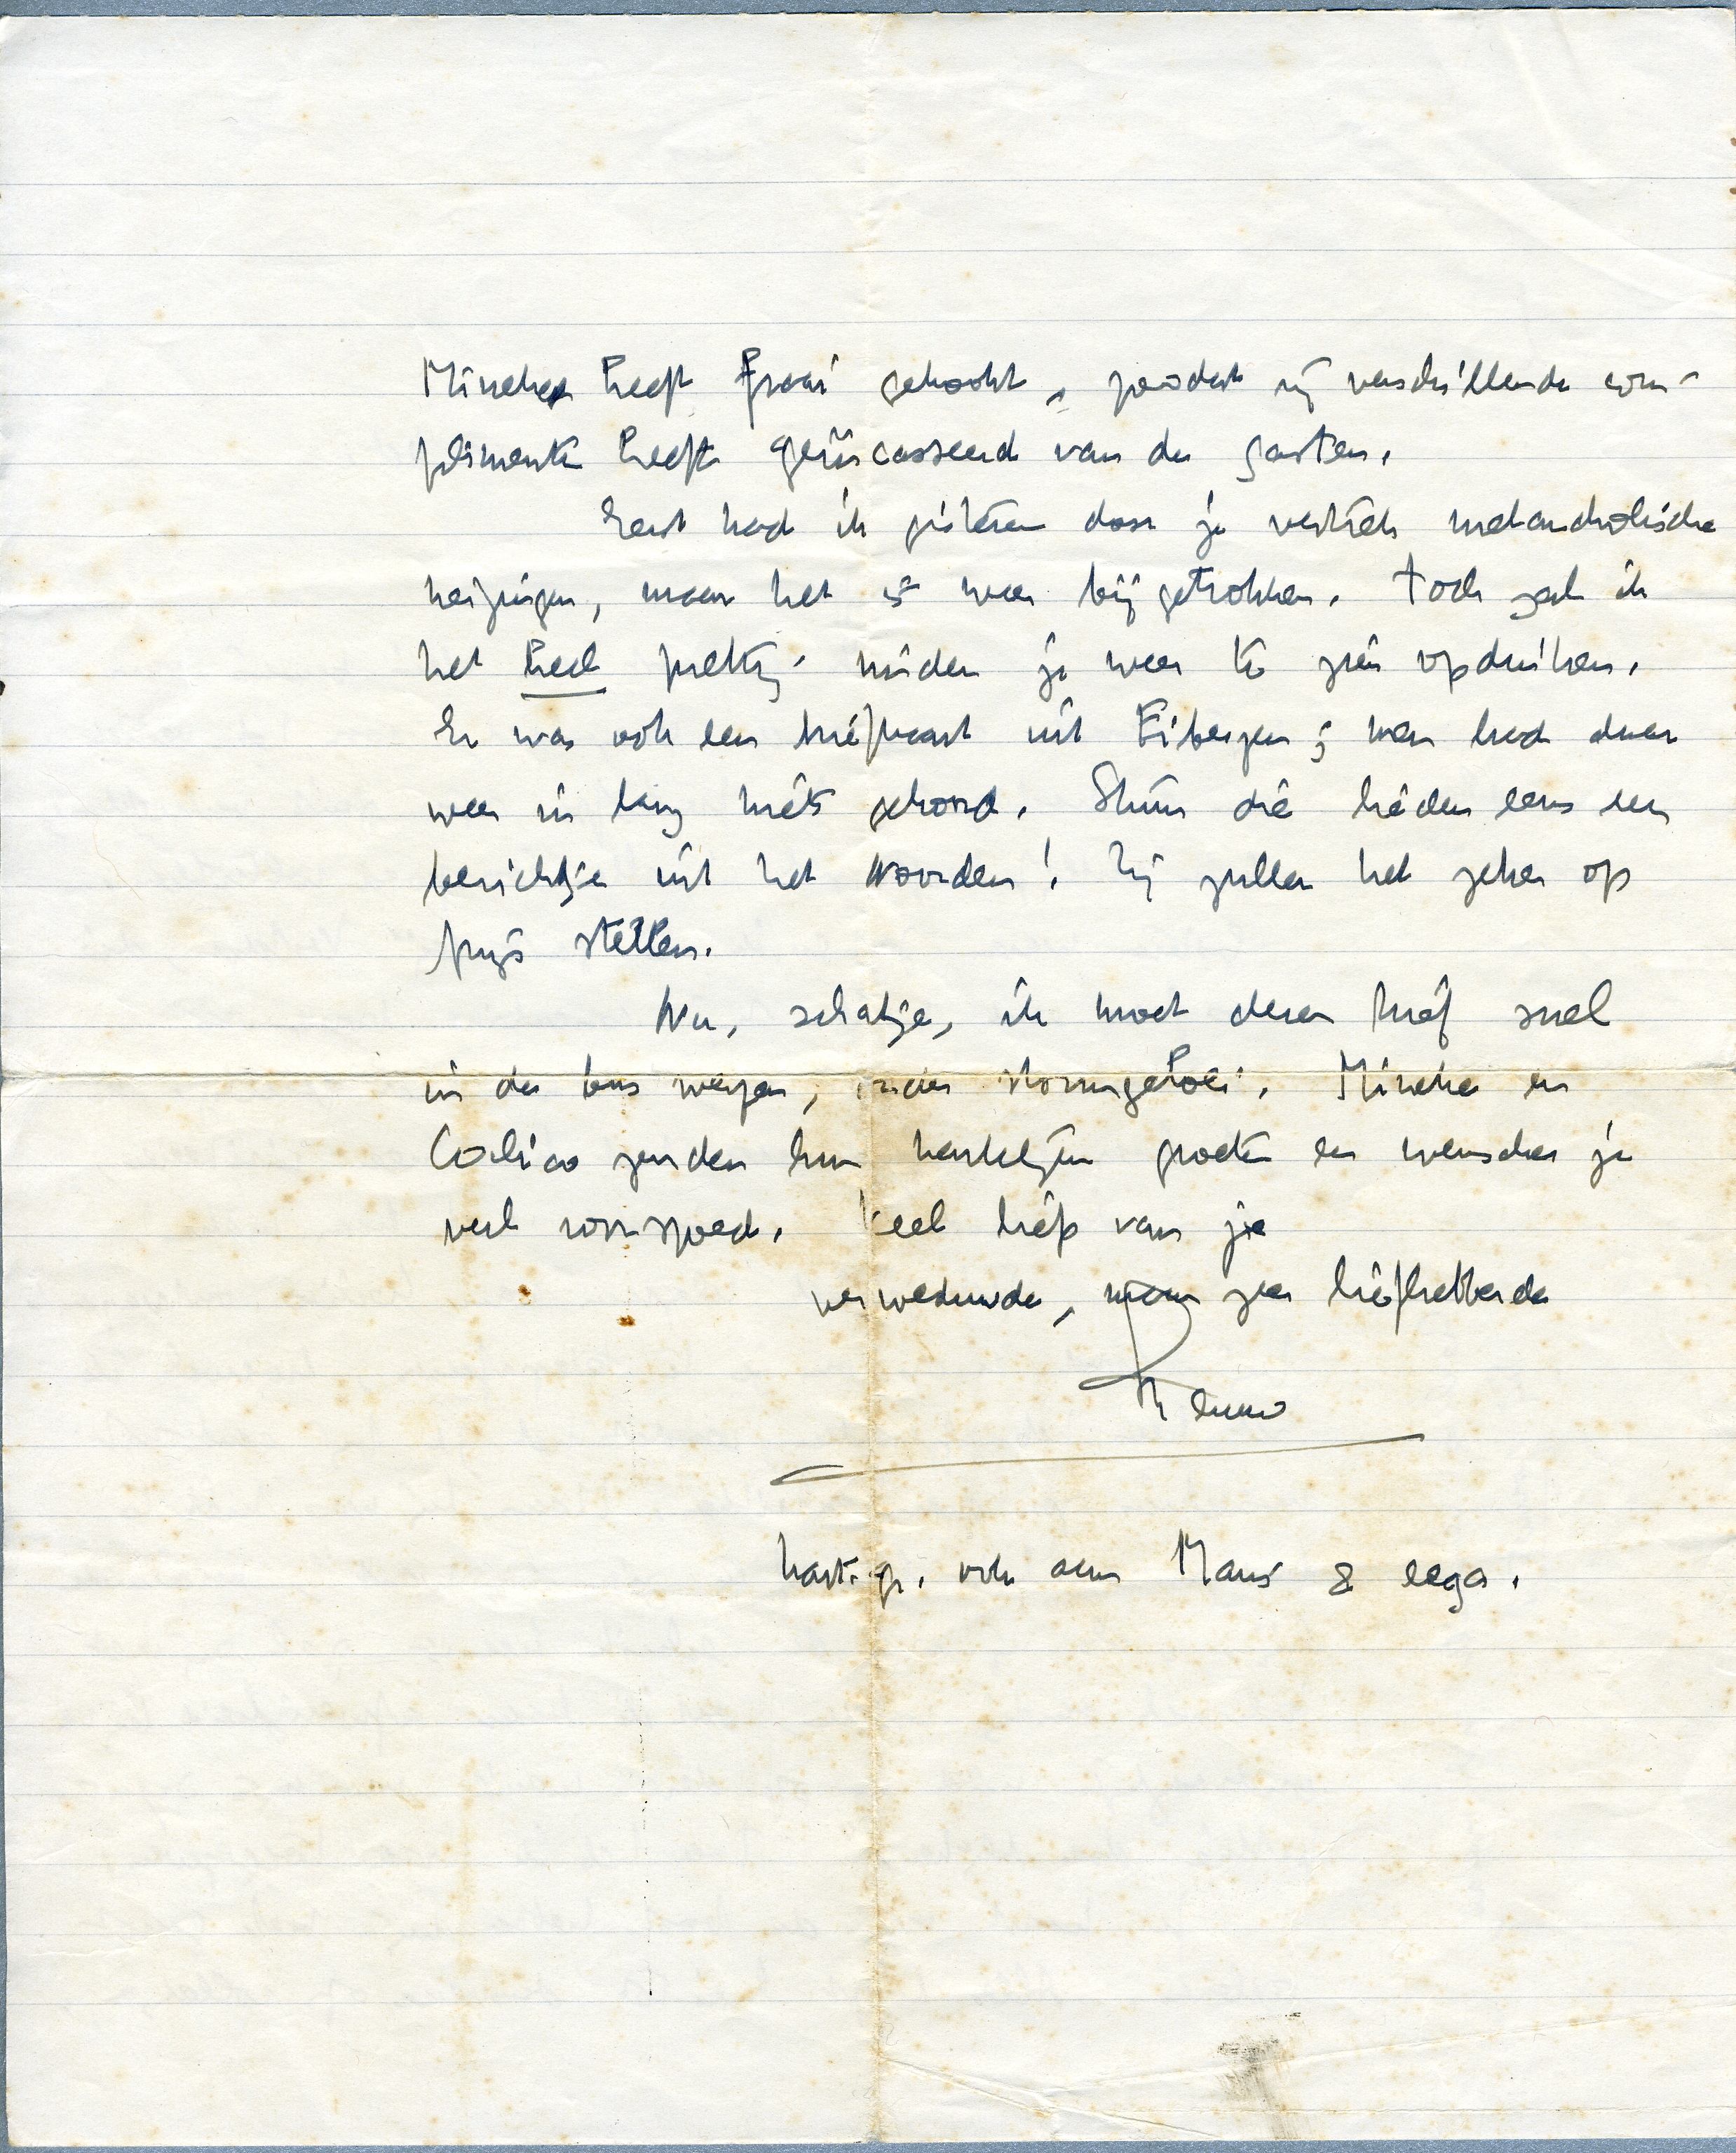 Mineke heeft fraai gekookt, zoodat zij verschillende com-
plimenten heeft geïncasseerd van de gasten.
Eerst had ik gisteren door je vertrek melancholische
neigingen, maar het is weer bijgetrokken. Toch zal ik
het heel prettig vinden je weer te zien opduiken.
Er was ook een briefkaart uit Eibergen; men had daar
weer in lang niets gehoord. Stuur die lieden eens een
berichtje uit het Noorden! Zij zullen het zeker op
prijs stellen.
Nu, schatje, ik moet dezen brief snel
in de bus werpen, onder stormgeloei. Mineke en
zenden hun hartelijke groeten en wenschen je
veel voorspoed. Veel liefs van je
verweduwde, maar zeer liefhebbende
Menno
hart. gr. ook aan Mans & eega.